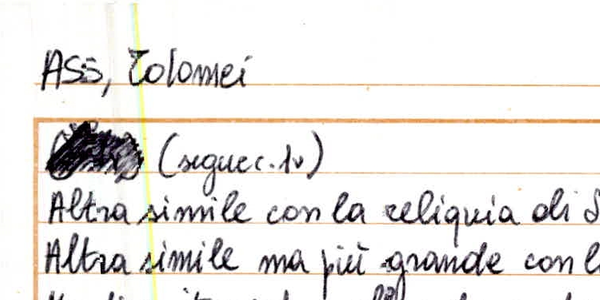 ASS, Tolomei
(segue c. 1v)
Altra simile con la reliquia di S
Altra simile ma più grande con l